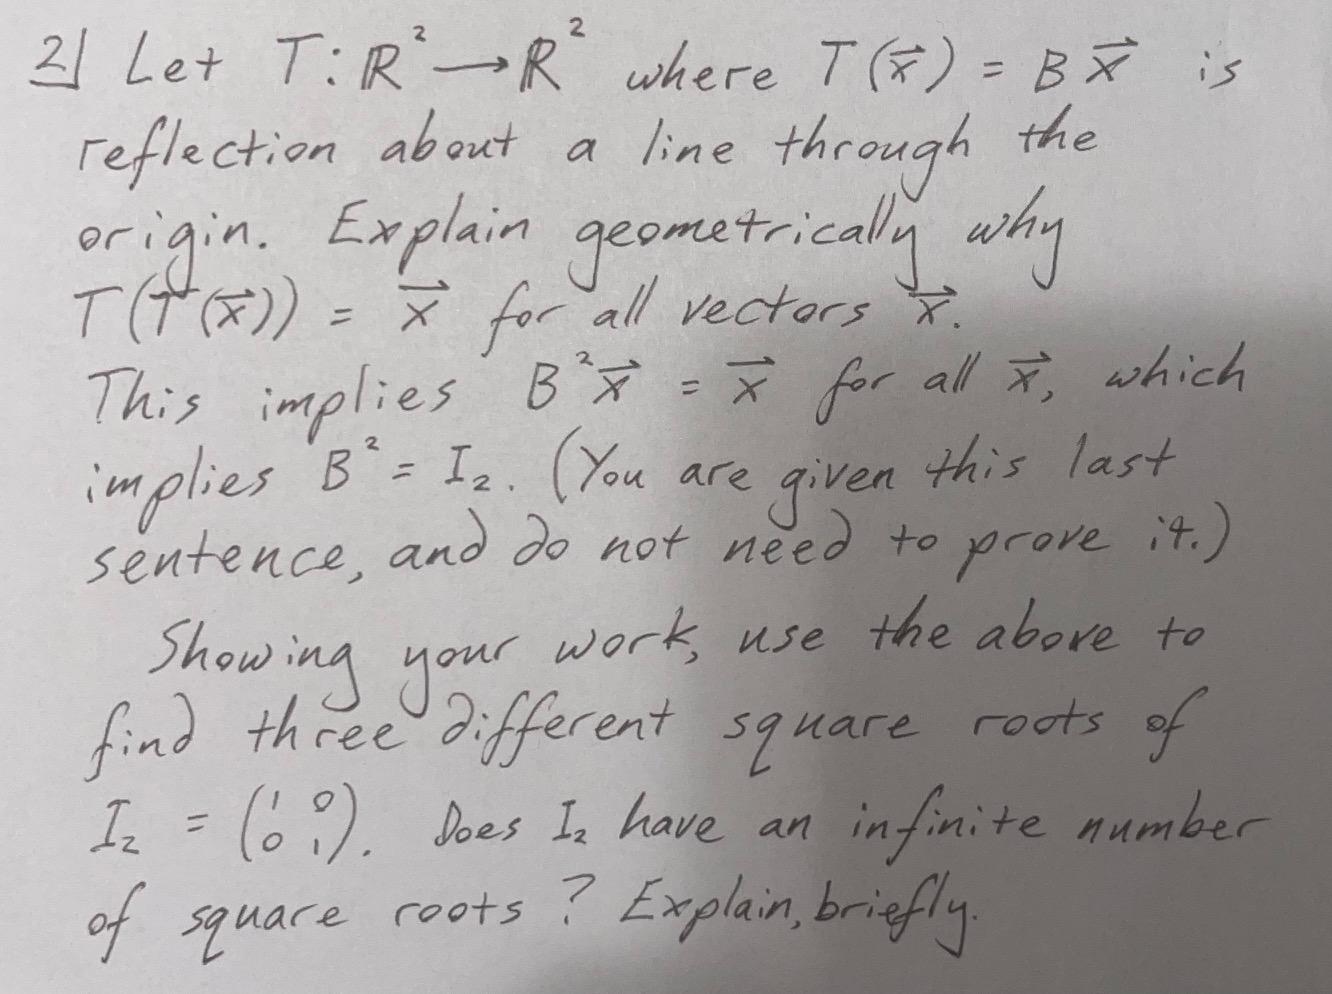 2| Let T: ℝ² → ℝ² where T(x⃗) = Bx⃗ is
reflection about a line through the
origin. Explain geometrically why
T(T(x⃗)) = x⃗ for all vectors x⃗.
This implies B²x⃗ = x⃗ for all x⃗, which
implies B² = I₂. (You are given this last
sentence, and do not need to prove it.)
Showing your work, use the above to
find three different square roots of
I₂ = (1 0
0 1). Does I₂ have an infinite number
of square roots? Explain, briefly.